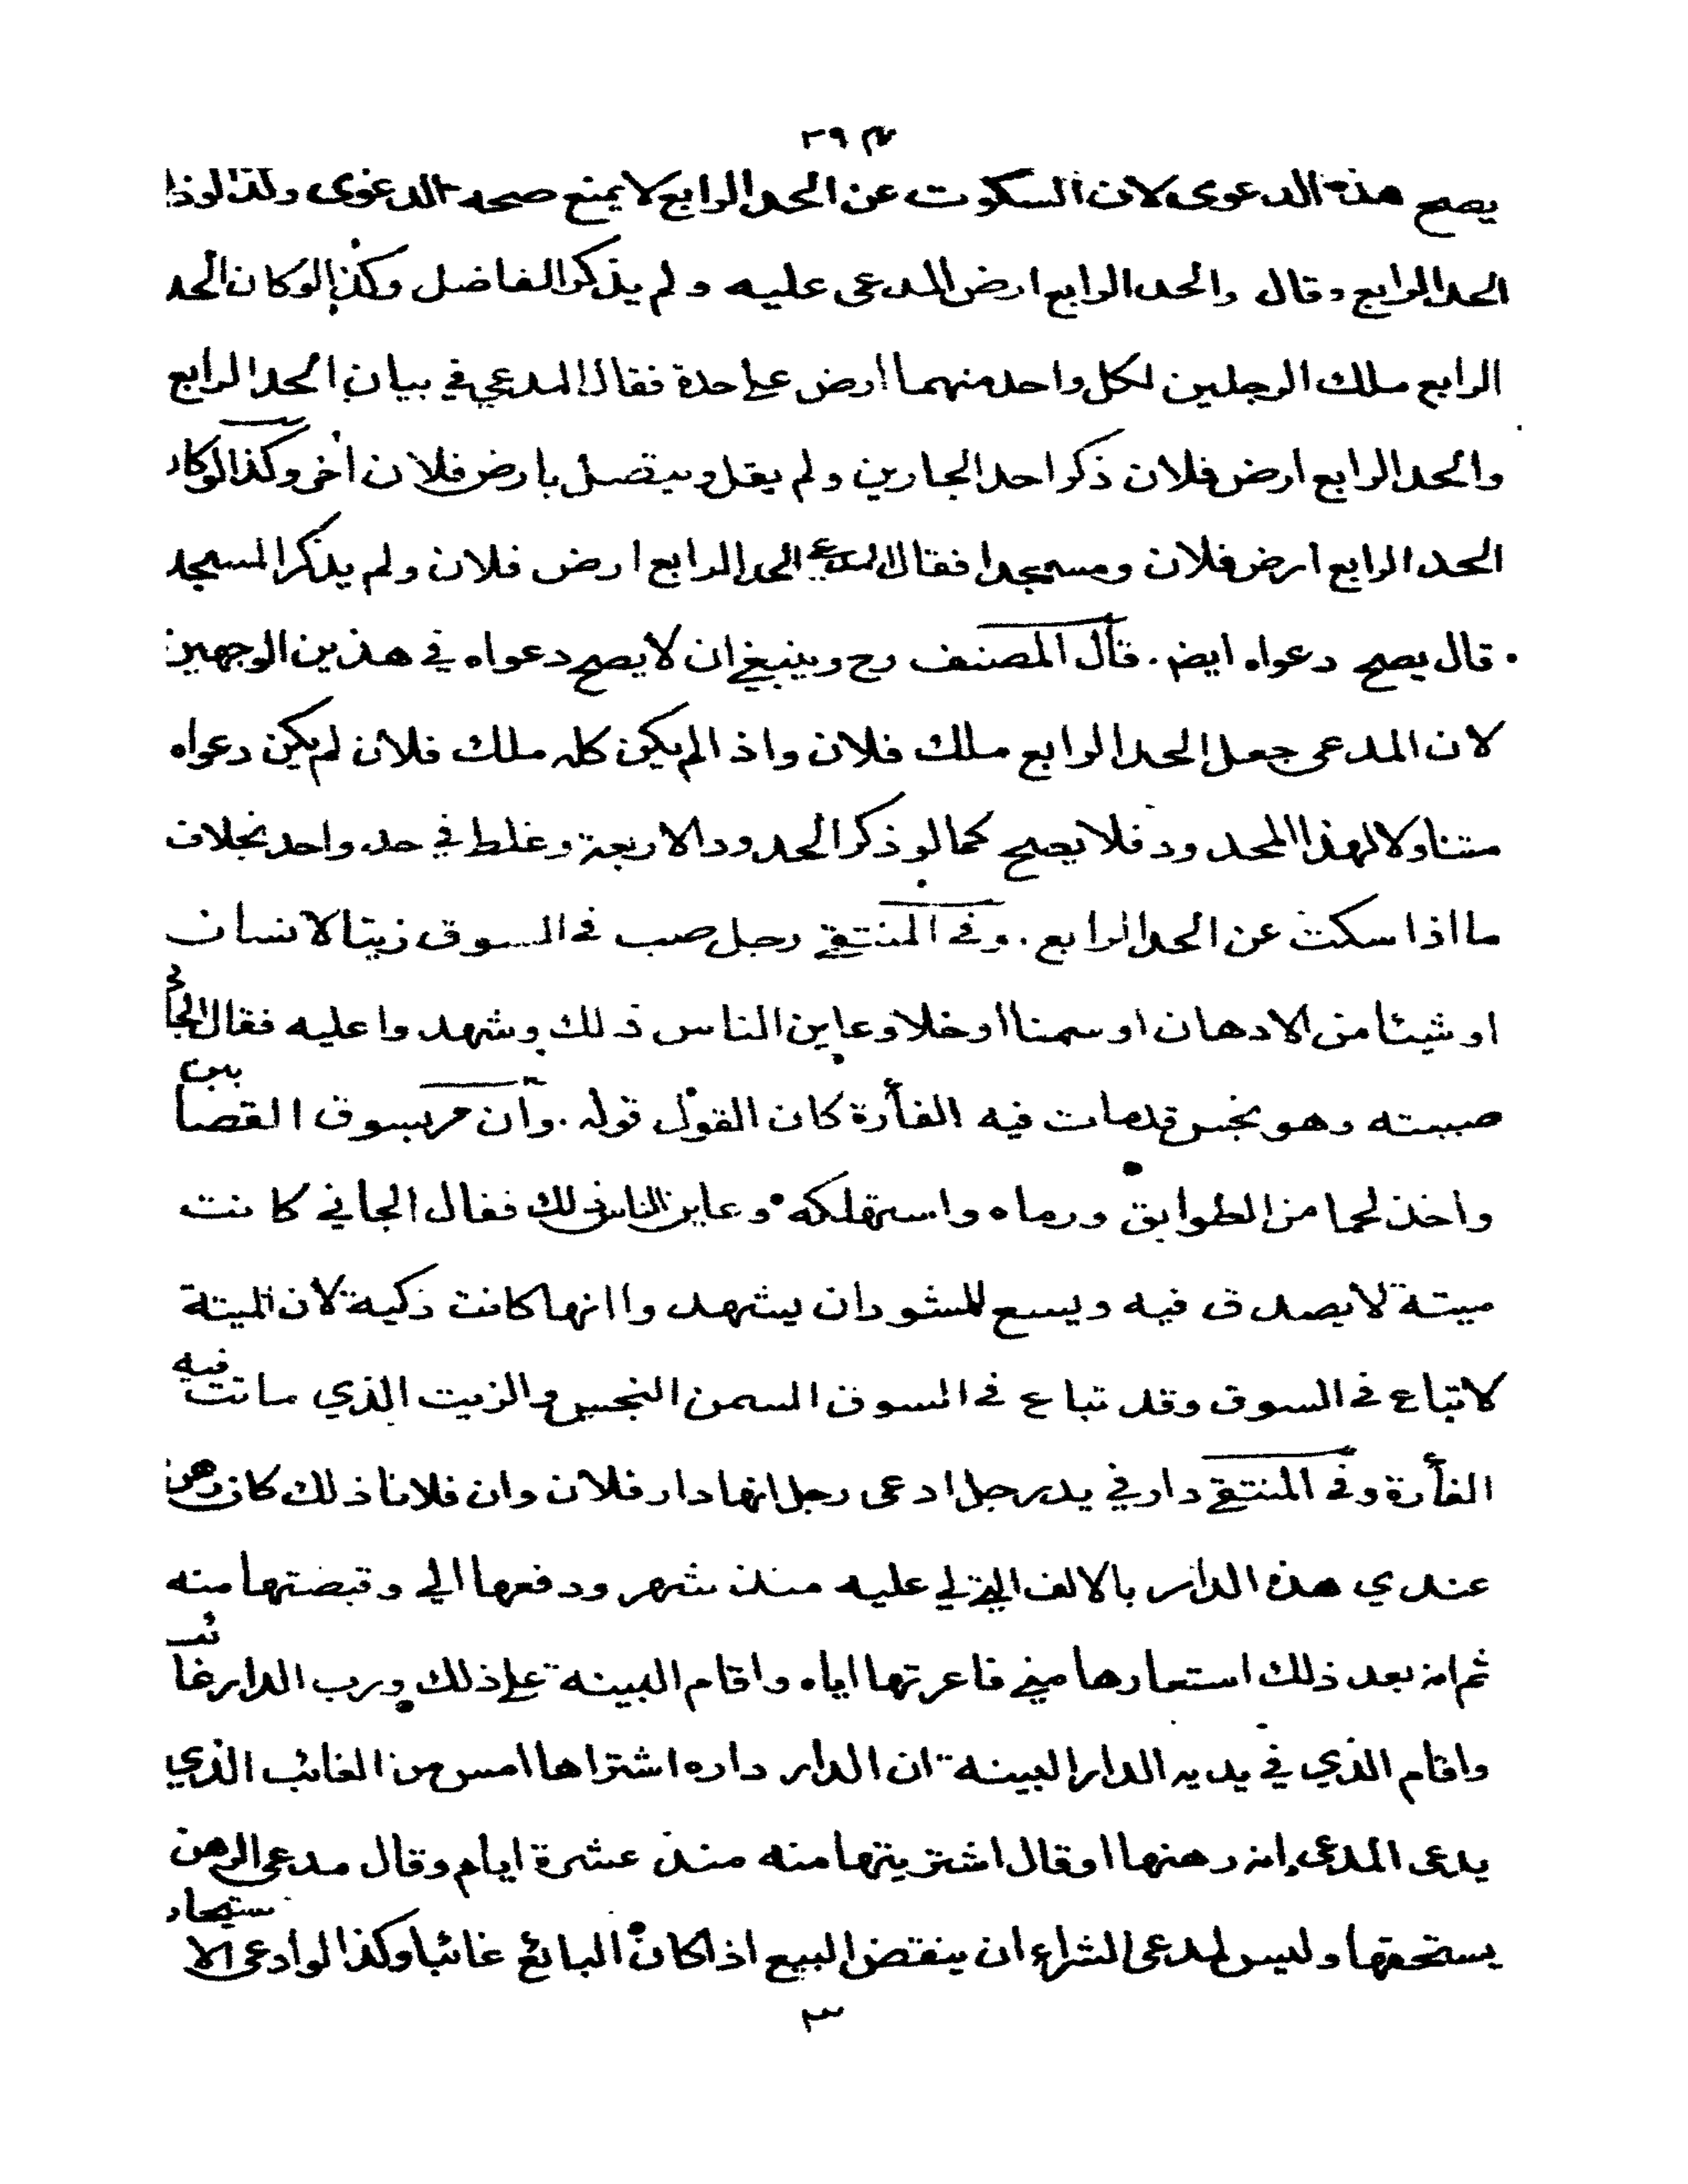 ٣٩
يصح هذه الدعوى لان السكوت عن الحد الرابع لا يمنع صحة الدعوى وكذا لو ذا
الحد الرابع وقال والحد الرابع ارض المدعى عليه ولم يذكر الفاضل وكذا لو كان الحد
الرابع ملك الرجلين لكل واحد منهما ارض علحدة فقال المدعي في بيان الحد الرابع
والحد الرابع ارض فلان ذكر احد الجارين ولم يقل ويتصل بارض فلان اخر وكذا لو كان
الحد الرابع ارض فلان ومسجدا فقال المدعي الحد الرابع ارض فلان ولم يذكر المسجد
قال يصح دعواه ايضم. قال المصنف رح وينبغي ان لا يصح دعواه في هذين الوجهين
لان المدعى جعل الحد الرابع ملك فلان واذا لم يكن كله ملك فلان لم يكن دعواه
متناولا لهذا المحدود فلا يصح كما لو ذكر الحدود الاربعة وغلط في حد واحد بخلاف
ما اذا سكت عن الحد الرابع. وفي المنتقى رجل صب في السوق زيتا لانسان
او شيئا من الادهان او سمنا او خلا وعاين الناس ذلك وشهدوا عليه فقال الجاني
صببته وهو نجس قد مات فيه الفأرة كان القول قوله. وان مر بسوق القصابين
واخذ لحما من الطوابق ورماه واستهلكه وعاين الناس ذلك فقال الجاني كانت
ميتة لا يصدق فيه ويسع للشهود ان يشهدوا انها كانت ذكية لان الميتة
لا تباع في السوق وقد تباع في السوق السمن النجس والزيت الذي ماتت فيه
الفأرة وفي المنتقى دار في يد رجل ادعى رجل انها دار فلان وان فلانا ذلك كان رهن
عندي هذه الدار بالالف التي لي عليه منذ شهر ودفعها الي وقبضتها منه
ثم انه بعد ذلك استعارها مني فاعرتها اياه واقام البينة على ذلك ورب الدار غائب
واقام الذي في يديه الدار البينة ان الدار داره اشتراها امس من الغائب الذي
يدعى المدعى انه رهنها او قال اشتريتها منه منذ عشرة ايام وقال مدعى الرهن
يستحقها وليس لمدعى الشراء ان ينقض البيع اذا كان البائع غائبا وكذا لو ادعى الاستيجار